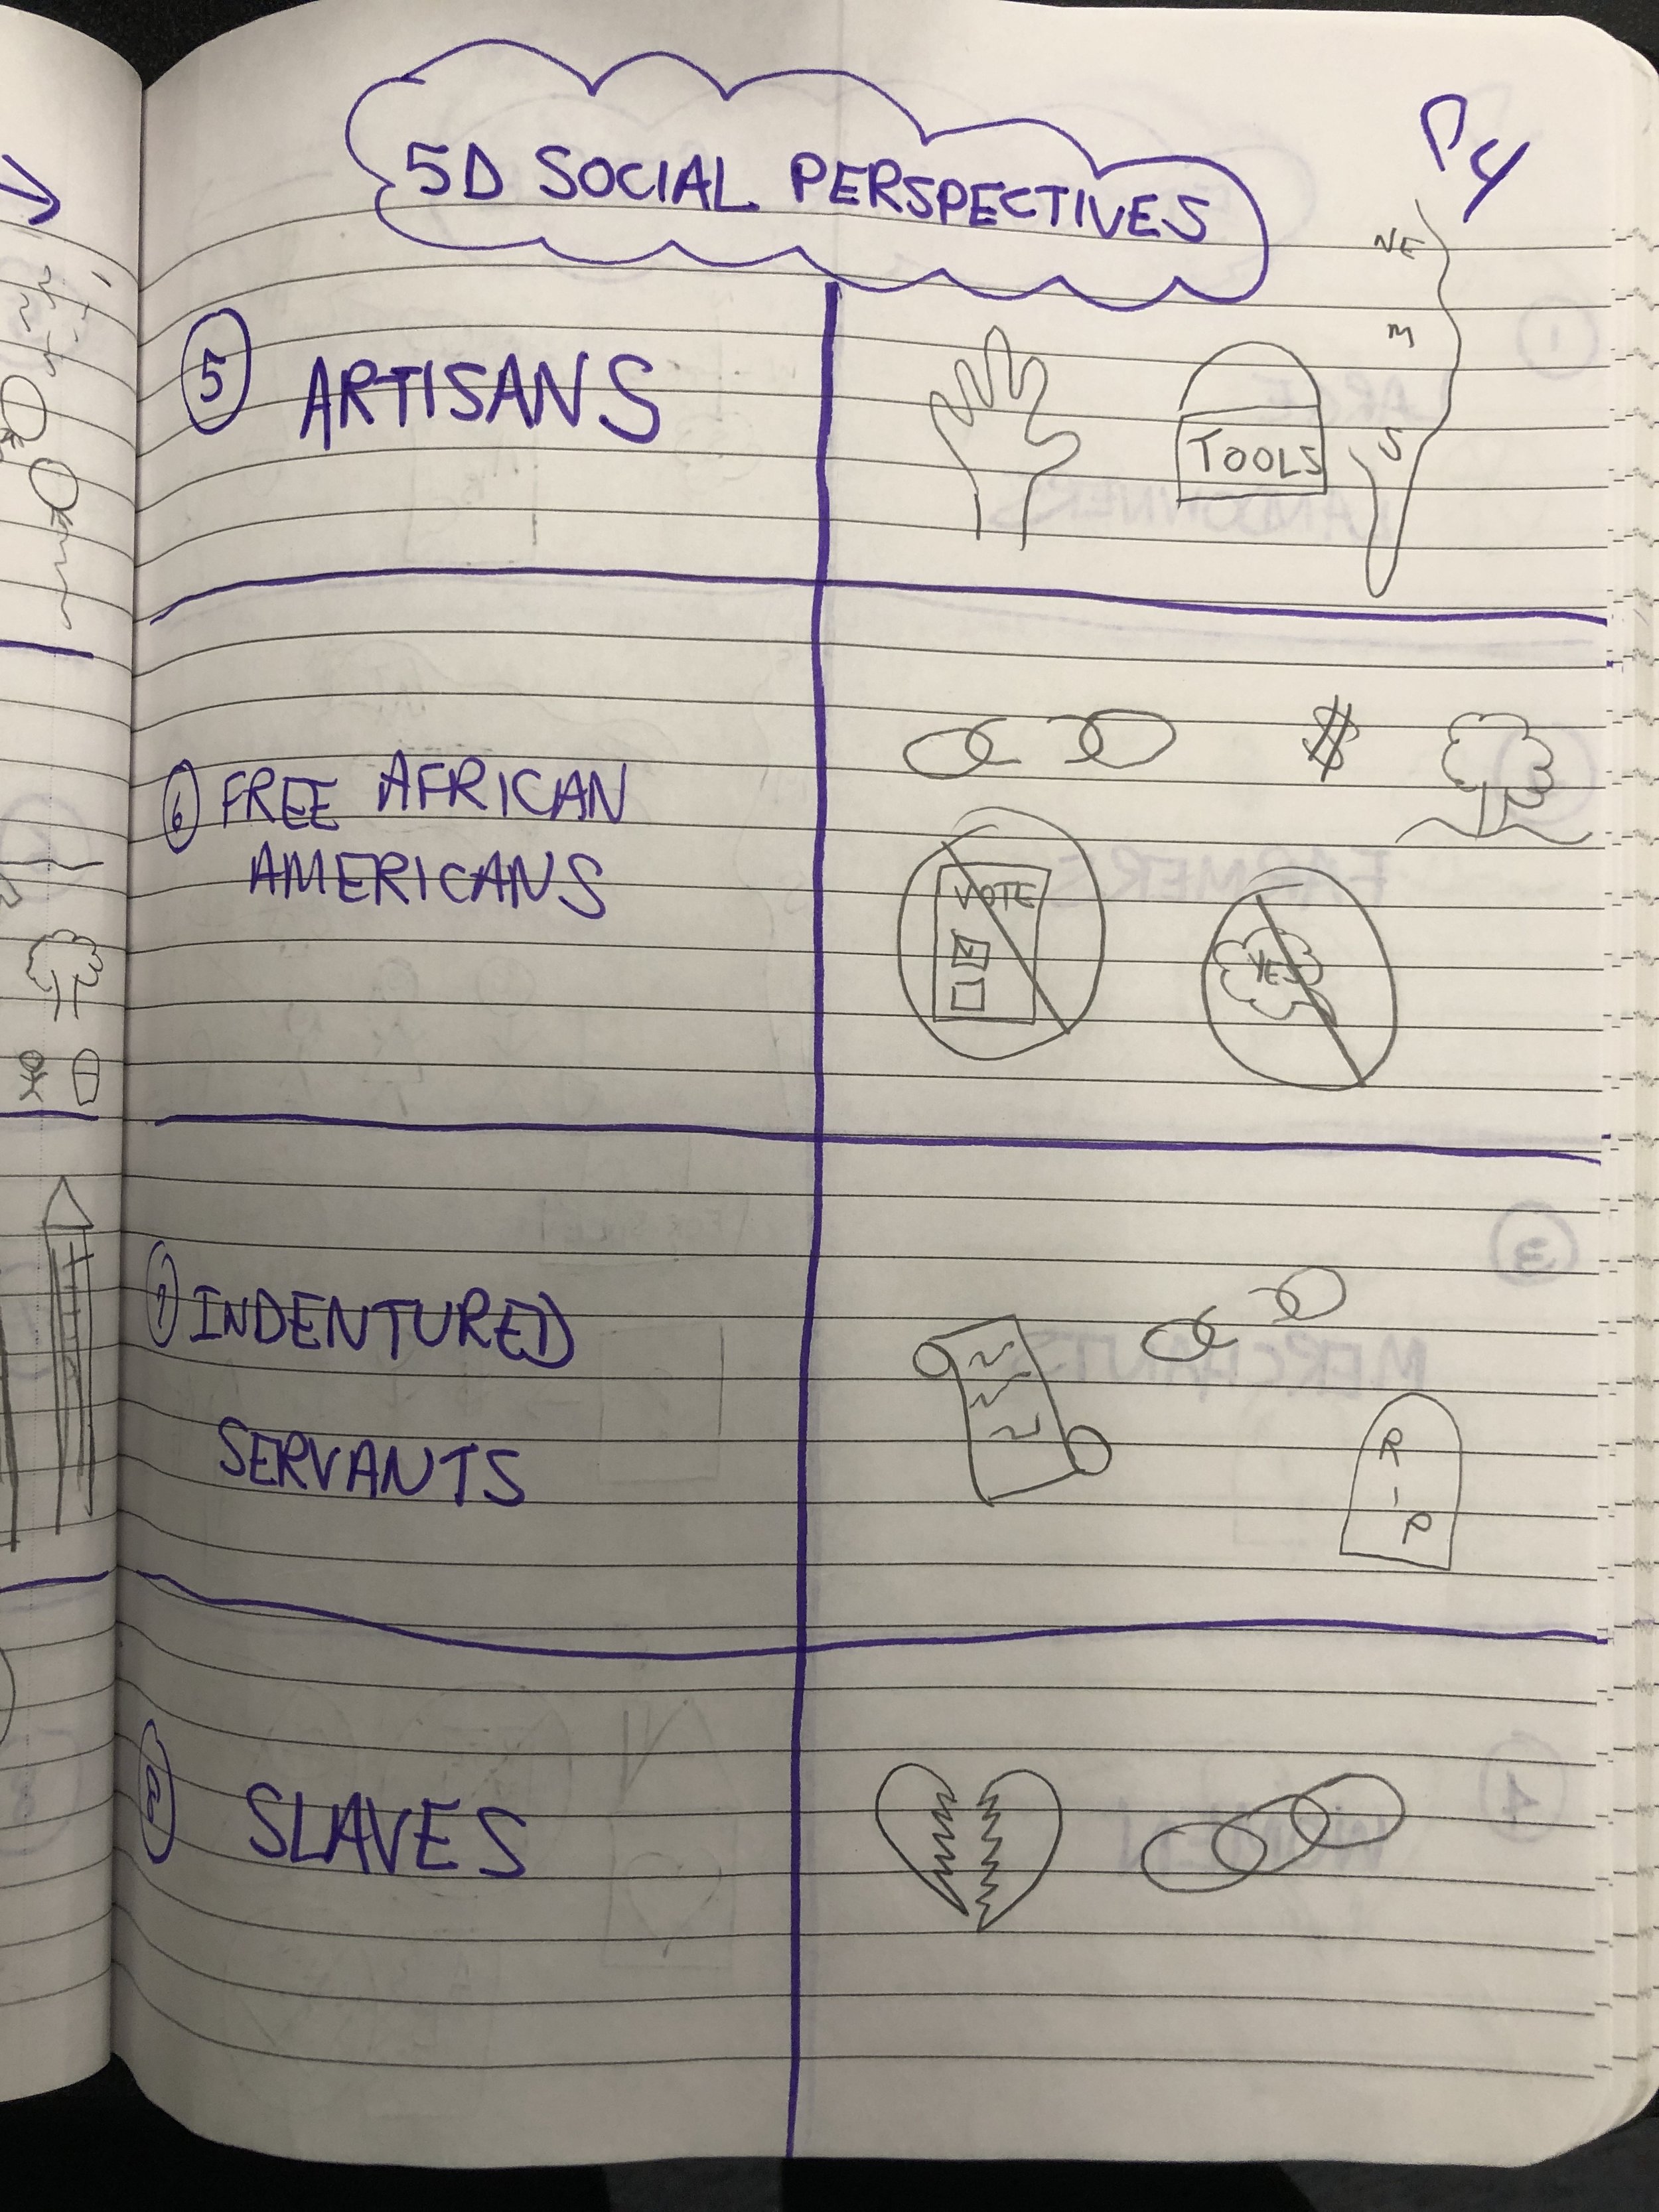 5D SOCIAL PERSPECTIVES
P4
NE
M
S
5 ARTISANS
TOOLS
6 FREE AFRICAN
AMERICANS
$
VOTE
YES
7 INDENTURED
SERVANTS
R
I
P
8 SLAVES